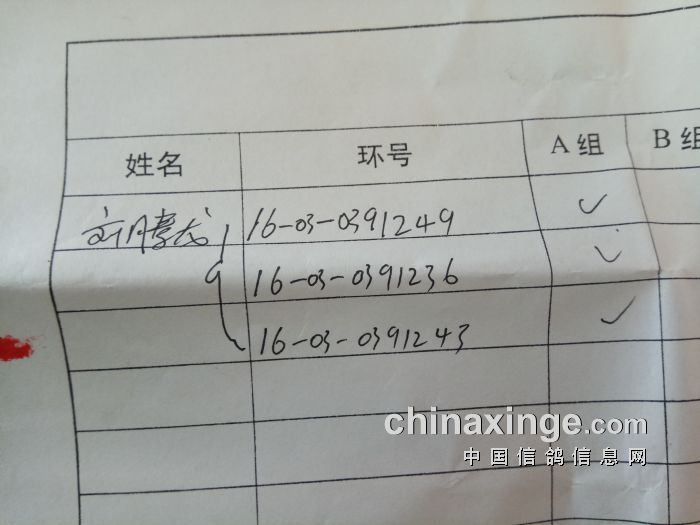 姓名 环号 A 组 B 组
刘腾龙 16-03-0391249 ✓
16-03-0391236 ✓
16-03-0391243 ✓
chinaxinge.com
中国信鸽信息网